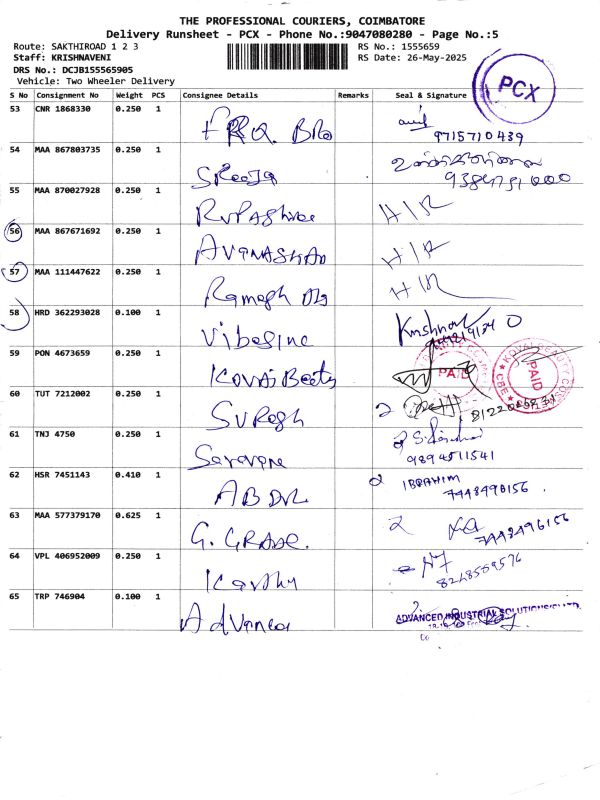 THE PROFESSIONAL COURIERS, COIMBATORE
Delivery Runsheet - PCX - Phone No.:9047080280 - Page No.:5
Route: SAKTHIROAD 1 2 3
RS No.: 1555659
Staff: KRISHNAVENI
RS Date: 26-May-2025
DRS No.: DCJB155565905
Vehicle: Two Wheeler Delivery
PCX
S No Consignment No Weight PCS Consignee Details Remarks Seal & Signature
53 CNR 1868330 0.250 1
9715710439
54 MAA 867803735 0.250 1 SReeja
55 MAA 870027928 0.250 1 H/R
56 MAA 867671692 0.250 1 H/R
57 MAA 111447622 0.250 1 Ramesh H/R
58 HRD 362293028 0.100 1
59 PON 4673659 0.250 1 KOVAI Beauty PAID PAID
60 TUT 7212002 0.250 1 SURESH 2
61 TNJ 4750 0.250 1 Saravana
9894511541
62 HSR 7451143 0.410 1 ABDUL 2 IBRAHIM
7448496156
63 MAA 577379170 0.625 1 G. GRACE. 2
7448496156
64 VPL 406952009 0.250 1 Karthy
65 TRP 746904 0.100 1 Advance
ADVANCED INDUSTRIAL SOLUTIONS